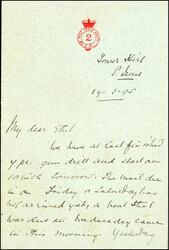 2
Tower Hill
S. Leone
19-3-95
My dear Ethel
We have at last finished
gun drill and start on
tomorrow. The mail due
in on Friday or Saturday has
not arrived yet, a boat that
was due on Wednesday came
in this morning. Yesterday